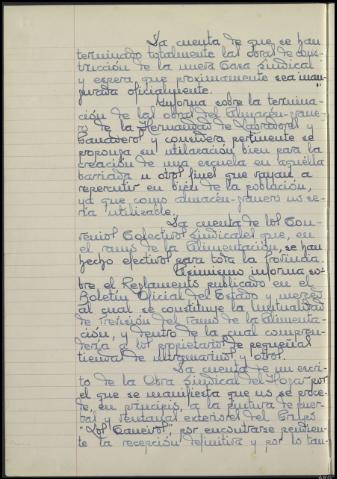 Da cuenta de que se han
terminado totalmente las obras de cons-
trucción de la nueva Casa Sindical
y espera que proximamente sea inau-
gurada oficialmente.
Informa sobre la termina-
ción de las obras del Almacén-grane-
ro de la Hermandad de Labradores y
Ganaderos y considera pertinente se
proponga su utilización bien para la
creación de una escuela en aquella
barriada u otros fines que vayan a
repercutir en bien de la población,
ya que como almacén-granero no se-
ría utilizable.
Da cuenta de los Con-
venios Colectivos Sindicales que, en
el ramo de la Alimentación, se han
hecho efectivos para toda la provincia.
Asimismo informa so-
bre el Reglamento publicado en el
Boletín Oficial del Estado y merced
al cual se constituye la Mutualidad
de Previsión del ramo de la alimenta-
ción, y dentro de la cual compren-
dería a los propietarios de pequeñas
tiendas de ultramarinos y otros.
Da cuenta de un escri-
to de la Obra Sindical del Hogar por
el que se manifiesta que no se proce-
de, en principio, a la pintura de puer-
tas y ventanas exteriores del Grupo
"Los Caneiros", por encontrarse pendien-
te la recepción definitiva y por lo tan-